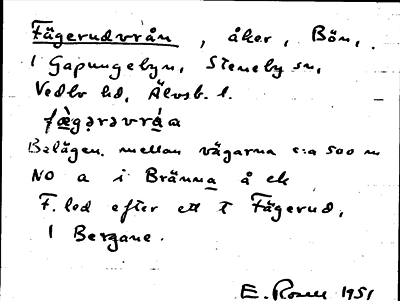 Fägerudvrån, åker, Bön,
i Gapungebyn, Steneby sn,
Vedbo hd, Älvsb. l.
fæ̀gərəvrá̱a
Belägen mellan vägarna c:a 500 m
NO a i Bränna å ek
F. led efter ett t Fägerud,
i Bergane.
E. Rosell 1951